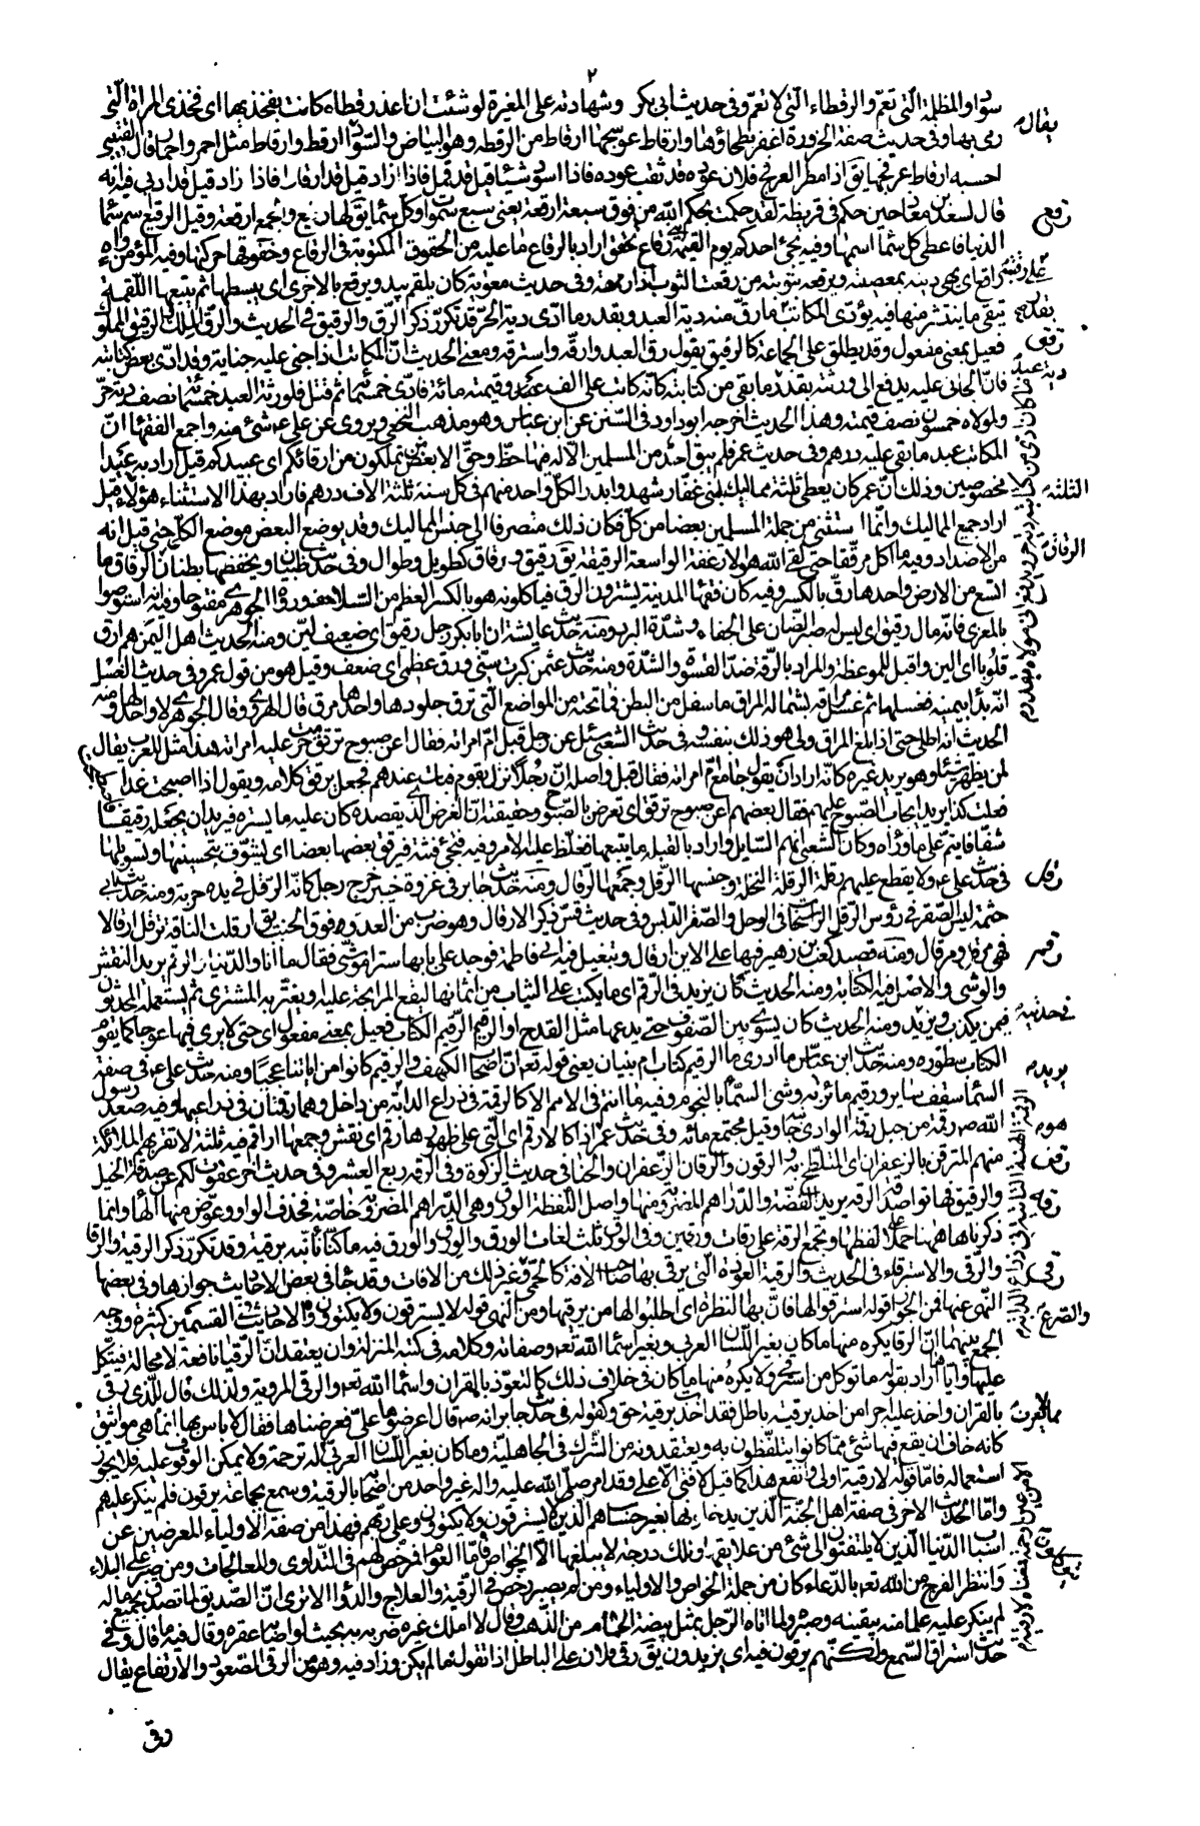 ٢
سوداء والمظلمة التى تعمّ والرقطاء التى لا تعمّ وفى حديث ابى بكر وشهادته على المغيرة لو شئت ان اعد رقطا كانت بفخذيها اى فخذى المراة التى
رمى بها وفى حديث صفة الحزورة اغفر بطحاؤها وارقاط عوسجها ارقاط من الرقطة وهو البياض والسواد ارقط وارقاط مثل احمر واحمار قال القتيبى
احسبه ارقاط عرفجها يق اذا مطر العرفج فلان عوده قد ثقب عوده فاذا اسود شيئا قيل قد قمل فاذا زاد قيل قد ارقاط فاذا زاد قيل قد ادبى فيه انه
قال لسعد بن معاذ حين حكم فى قريظة لقد حكمت بحكم الله من فوق سبعة ارقعة يعنى سبع سموات وكل سماء يق لها رقيع والجمع ارقعة وقيل الرقيع اسم سماء
الدنيا فاعطى كل سماء اسمها وفيه يجئ احدكم يوم القيمة على رقبته رقاع تخفق اراد بالرقاع ما عليه من الحقوق المكتوبة فى الرقاع وخفوقها حركتها وفيه المؤمن واه
راقع اى يهى دينه بمعصيته ويرقعه بتوبته من رقعت الثوب اذا رممته وفى حديث معوية كان يلقم بيد ويرقع بالاخرى اى يبسطها ثم يتبعها اللقمة
يتقى ما ينتثر منها فيه يؤدى المكاتب ما رق منه دية العبد وبقدر ما ادى دية الحر قد تكرر ذكر الرق والرقيق فى الحديث والرق الملك والرقيق المملوك
فعيل بمعنى مفعول وقد يطلق على الجماعة كالرفيق يقول رق العبد وارقه واسترقه ومعنى الحديث ان المكاتب اذا جنى عليه جناية وقد ادى بعض كتابته
فان الجانى عليه يدفع الى ورثته بقدر ما بقى من كتابته كانه كاتب على الف وقيمته مائة فادى خمسمائة ثم قتل فلورثة العبد خمسمائة نصف دية حر
ولمولاه خمسون نصف قيمته وهذا الحديث اخرجه ابو داود فى السنن عن ابن عباس وهو مذهب النخعى ويروى عن على ع شئ منه واجمع الفقهاء ان
المكاتب عبد ما بقى عليه درهم وفى حديث عمر فلم يبق احد من المسلمين الا له فيها حظ وحق الا بعض من تملكون من ارقائكم اى عبيدكم قيل اراد به عبيدا
مخصوصين وذلك ان عمر كان يعطى ثلثة مماليك لبنى غفار شهدوا بدر الكل واحد منهم فى كل سنة ثلثة الاف درهم فاراد بهذا الاستثناء هؤلاء الثلثة وقيل
اراد جميع المماليك وانما استثنى من جملة المسلمين بعضا من كل فكان ذلك منصرفا الى جنس المماليك وقد يوضع البعض موضع الكل حتى قيل انه
من الاضداد وفيه ما اكل مرققا حتى لقى الله هو الارغفة الواسعة الرقيقة يق رقيق ورقاق كطويل وطوال
اتسع من الارض واحدها رق بالكسر وفيه كان فقهاء المدينة يشترون الرق فياكلونه هو بالكسر العظيم من السلاحف ورواه الجوهرى مفتوحا وفيه استوصوا
بالمعزى فانه مال رقيق اى ليس له صبر الضان على الجفاء وشدة البرد ومنه حديث عايشة ان ابابكر رجل رقيق اى ضعيف لين ومنه الحديث اهل اليمن هم ارق
قلوبا اى الين واقبل للموعظة والمراد بالرقة ضد القسوة والشدة ومنه حديث عثمن كبرت سنى ورق عظمى اى ضعف وقيل هو من قول عمر وفى حديث الغسل
انه بدا بيمينه فغسلها ثم غسل مراقه بشماله المراق ما سفل من البطن فما تحته من المواضع التى ترق جلودها واحدها مرق قاله الهروى وقال الجوهرى لا واحد لها ومنه
الحديث انه اطلى حتى اذا بلغ المراق ولى هو ذلك بنفسه وفى حديث الشعبى سئل عن رجل قبل ام امراته فقال اعن صبوح ترقق حرمت عليه امراته هذا مثل للعرب يقال
لمن يظهر شيئا وهو يريد غيره كانه اراد ان يقول جامع ام امراته فقال قبل واصله ان رجلا نزل بقوم فبات عندهم فجعل يرقق كلامه ويقول اذا اصبحت غدا
فعلت كذا يريد ايجاب الصبوح عليهم فقال بعضهم اعن صبوح ترقق اى تعرض بالصبوح وحقيقته ان الغرض الذى يقصده كان عليه ما يستره فيريد ان يجعله رقيقا
شفافا ينم على ما وراه وكان الشعبى اتهم السايل واراد بالقبلة ما يتبعها فغلظ عليه الامر وفيه فتجئ فتنة فيرقق بعضها بعضا اى يشوق بتحسينها وتسويلها
فى حديث على ع ولا يقطع عليهم رقلة الرقلة النخلة وجنسها الرقل وجمعها الرقال ومنه حديث جابر فى غزوة خيبر خرج رجل كانه الرقل فى يده حربة ومنه حديث ابى
حثمة ليس الصقر فى رؤس الرقل الراسخات فى الوحل والصقر الدبس وفى حديث قس ذكر الارقال وهو ضرب من العدو فوق الخبب يق ارقلت الناقة ترقل ارقالا
فهى مرقل ومرقال ومنه قصيد كعب بن زهير فيها على الاين ارقال وتبغيل فيه اتى فاطمة فوجد على بابها سترا موشى فقال ما انا والدنيا والرقم يريد النقش
والوشى والاصل فيه الكتابة ومنه الحديث كان يزيد فى الرقم اى ما يكتب على الثياب من اثمانها ليقع المرابحة عليه او يغتر به المشترى ثم يستعمله المحدثون
فيمن يكذب ويزيد ومنه الحديث كان يسوى بين الصفوف حتى يدعها مثل القدح او الرقيم الرقيم الكتاب فعيل بمعنى مفعول اى حتى لا يرى فيها عوجا كما يقوم
الكتاب سطوره ومنه حديث ابن عباس ما ادرى ما الرقيم كتاب ام بنيان يعنى قوله تعر ان اصحاب الكهف والرقيم كانوا من اياتنا عجبا ومنه حديث على ع فى صفة
السماء سقف ساير ورقيم مائر يريد به وشى السماء بالنجوم وفيه ما انتم فى الامم الا كالرقمة فى ذراع الدابة من داخل وهما رقمتان فى ذراعيها وفيه صعد رسول
الله ص رقمة من جبل رقمة الوادى جانبه وقيل مجتمع مائه وفى حديث عمر هو اذا كالارقم اى التى على ظهرها رقم اى نقش وجمعها اراقم فيه ثلثة لا تقربهم الملائكة
منهم المترقن بالزعفران اى المتلطخ به والرقون والرقان الزعفران والحنا فى حديث الزكوة وفى الرقه ربع العشر وفى حديث اخر عفوت لكم عن صدقة الخيل
والرقيق فهاتوا صدقة الرقه يريد الفضة والدراهم المضروبة منها واصل اللفظة الورق وهى الدراهم المضروبة خاصة فحذف الواو وعوض منها الهاء وانما
ذكرناها ههنا حملا على لفظها وتجمع الرقة على رقات ورقين وفى الورق ثلث لغات الورق والورق والورق فيه ما كنا نابنه برقية وقد تكرر ذكر الرقية والرقا
والرقى والاسترقاء فى الحديث والرقية العوذة التى يرقى بها صاحب الافة كالحمى والصرع وغير ذلك من الافات وقد جاء فى بعض الاحاديث جوازها وفى بعضها
النهى عنها فمن الجواز قوله استرقوا لها فان بها النظرة اى اطلبوا لها من يرقيها ومن النهى قوله لا يسترقون ولا يكتوون والاحاديث فى القسمين كثيرة ووجه
الجمع بينهما ان الرقا يكره منها ما كان بغير اللسان العربى وبغير اسماء الله تعر وصفاته وكلامه فى كتبه المنزلة وان يعتقد ان الرقيا نافعة لا محالة فيتكل
عليها واياها اراد بقوله ما توكل من استرقى ولا يكره منها ما كان فى خلاف ذلك كالتعوذ بالقران واسماء الله تعر والرقى المروية ولذلك قال للذى رقى
بالقران واخذ عليه اجرا من اخذ برقية باطل فقد اخذت برقية حق وكقوله فى حديث جابر انه ص قال اعرضوها على فعرضناها فقال لا باس بها انما هى مواثيق
كانه خاف ان يقع فيها شئ مما كانوا يتلفظون به ويعتقدونه من الشرك فى الجاهلية وما كان بغير اللسان العربى مما لا يعرف له ترجمة ولا يمكن الوقوف عليه فلا يجوز
استعماله فاما قوله لا رقية الا من عين او حمة فمعناه لا رقية اولى وانفع هذا كما قيل لا فتى الا على وقد امر صلى الله عليه واله غير واحد من اصحابه بالرقية وسمع بجماعة يرقون فلم ينكر عليهم
واما الحديث الاخر فى صفة اهل الجنة الذين يدخلونها بغير حساب هم الذين لا يسترقون ولا يكتوون وعلى ربهم يتوكلون فهذا من صفة الاولياء المعرضين عن
اسباب الدنيا الذين لا يلتفتون الى شئ من علايقها وتلك درجة لا يبلغها الا الخواص فاما العوام فرخص لهم فى التداوى والمعالجات ومن صبر على البلاء
وانتظر الفرج من الله تعر بالدعاء كان من جملة الخواص والاولياء ومن لم يصبر رخص فى الرقية والعلاج والدواء الا ترى ان الصديق لما تصدق بجميع ماله
لم ينكر عليه علما منه بيقينه وصبره ولما اتاه الرجل بمثل بيضة الحمامة من الذهب وقال لا املك غيره ضربه به بحيث لو اصابه عقره وقال فيه ما قال وفى
حديث استراق السمع ولكنهم يرقون فيه اى يزيدون يق رقى فلان على الباطل اذا تقول ما لم يكن وزاد فيه وهو من الرقى الصعود والارتفاع يقال
رقى